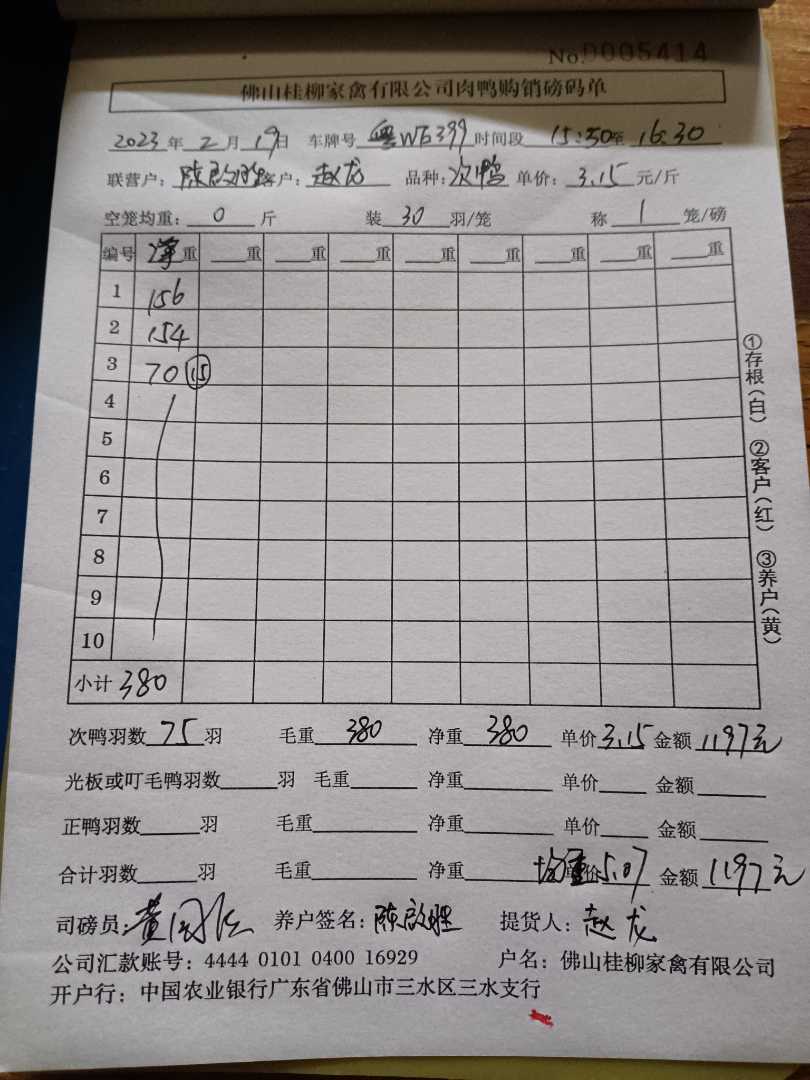 No.0005414
佛山桂柳家禽有限公司肉鸭购销磅码单
2023年2月19日 车牌号 粤W6399 时间段 15:50至16:30
联营户:陈启胜 客户:赵龙 品种:次鸭 单价:3.15元/斤
空笼均重:0斤 装30羽/笼 称1笼/磅
编号 净重 重 重 重 重 重 重 重 重
1 156
2 154
3 70 15
4
5
6
7
8
9
10
小计 380
次鸭羽数75羽 毛重380 净重380 单价3.15 金额1197元
光板或叮毛鸭羽数 羽 毛重 净重 单价 金额
正鸭羽数 羽 毛重 净重 单价 金额
合计羽数 羽 毛重 净重 均重5.07 金额1197元
司磅员: 养户签名:陈启胜 提货人:赵龙
公司汇款账号:4444 0101 0400 16929 户名:佛山桂柳家禽有限公司
开户行:中国农业银行广东省佛山市三水区三水支行
①存根(白) ②客户(红) ③养户(黄)